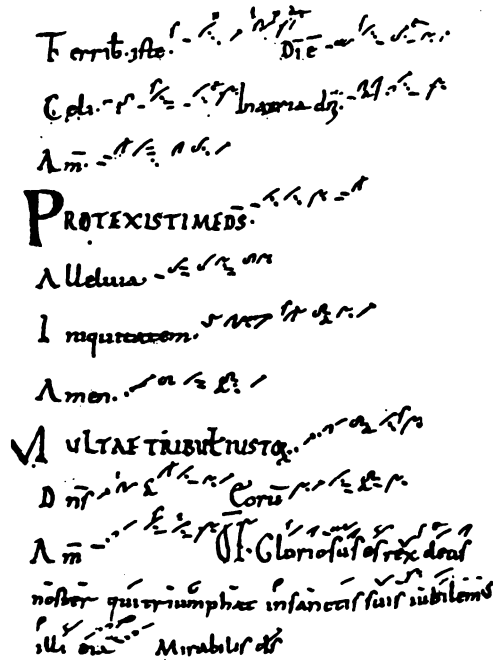 Territ. iste. Die
Celi. Inatria dn̄.
Am̄.
PROTEXISTI ME DS̄.
Alleluia
Iniquitatem.
Amen.
MULTAE TRIBUL IUSTOR.
Dn̄s Corū
Am̄ Of. Gloriosus es rex deus
nost̄er qui triumphat in sanctis suis iubilem̄s
illi eia Mirabilis ds̄